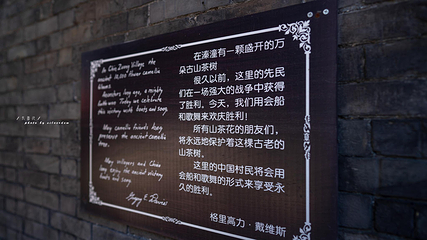 In Chin Zhong Village the
ancient 10,000 flower camellia
blooms.
Ancestors long ago, a mighty
battle won. Today we celebrate
this victory with boats and song.
Many camellia friends
preserve the ancient camellia
tree.
Many villagers and China
enjoy the ancient victory
boats and song.
在溱潼有一颗盛开的万
朵古山茶树
很久以前，这里的先民
们在一场强大的战争中获得
了胜利，今天，我们用会船
和歌舞来欢庆胜利！
所有山茶花的朋友们，
将永远地保护着这棵古老的
山茶树。
这里的中国村民将会用
会船和歌舞的形式来享受永
久的胜利。
格里高力·戴维斯